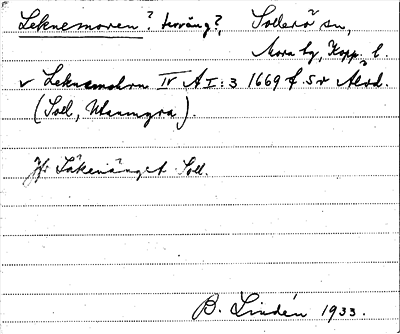 Leknemoren? terräng?, Sollerö sn,
Mora tg, Kopp. l.
v Leknemohrn IV A I:3 1669 f. 5r Alsd.
(Soll, Utanmyra).
Jfr Läkeränget Soll.
B. Lindén 1933.